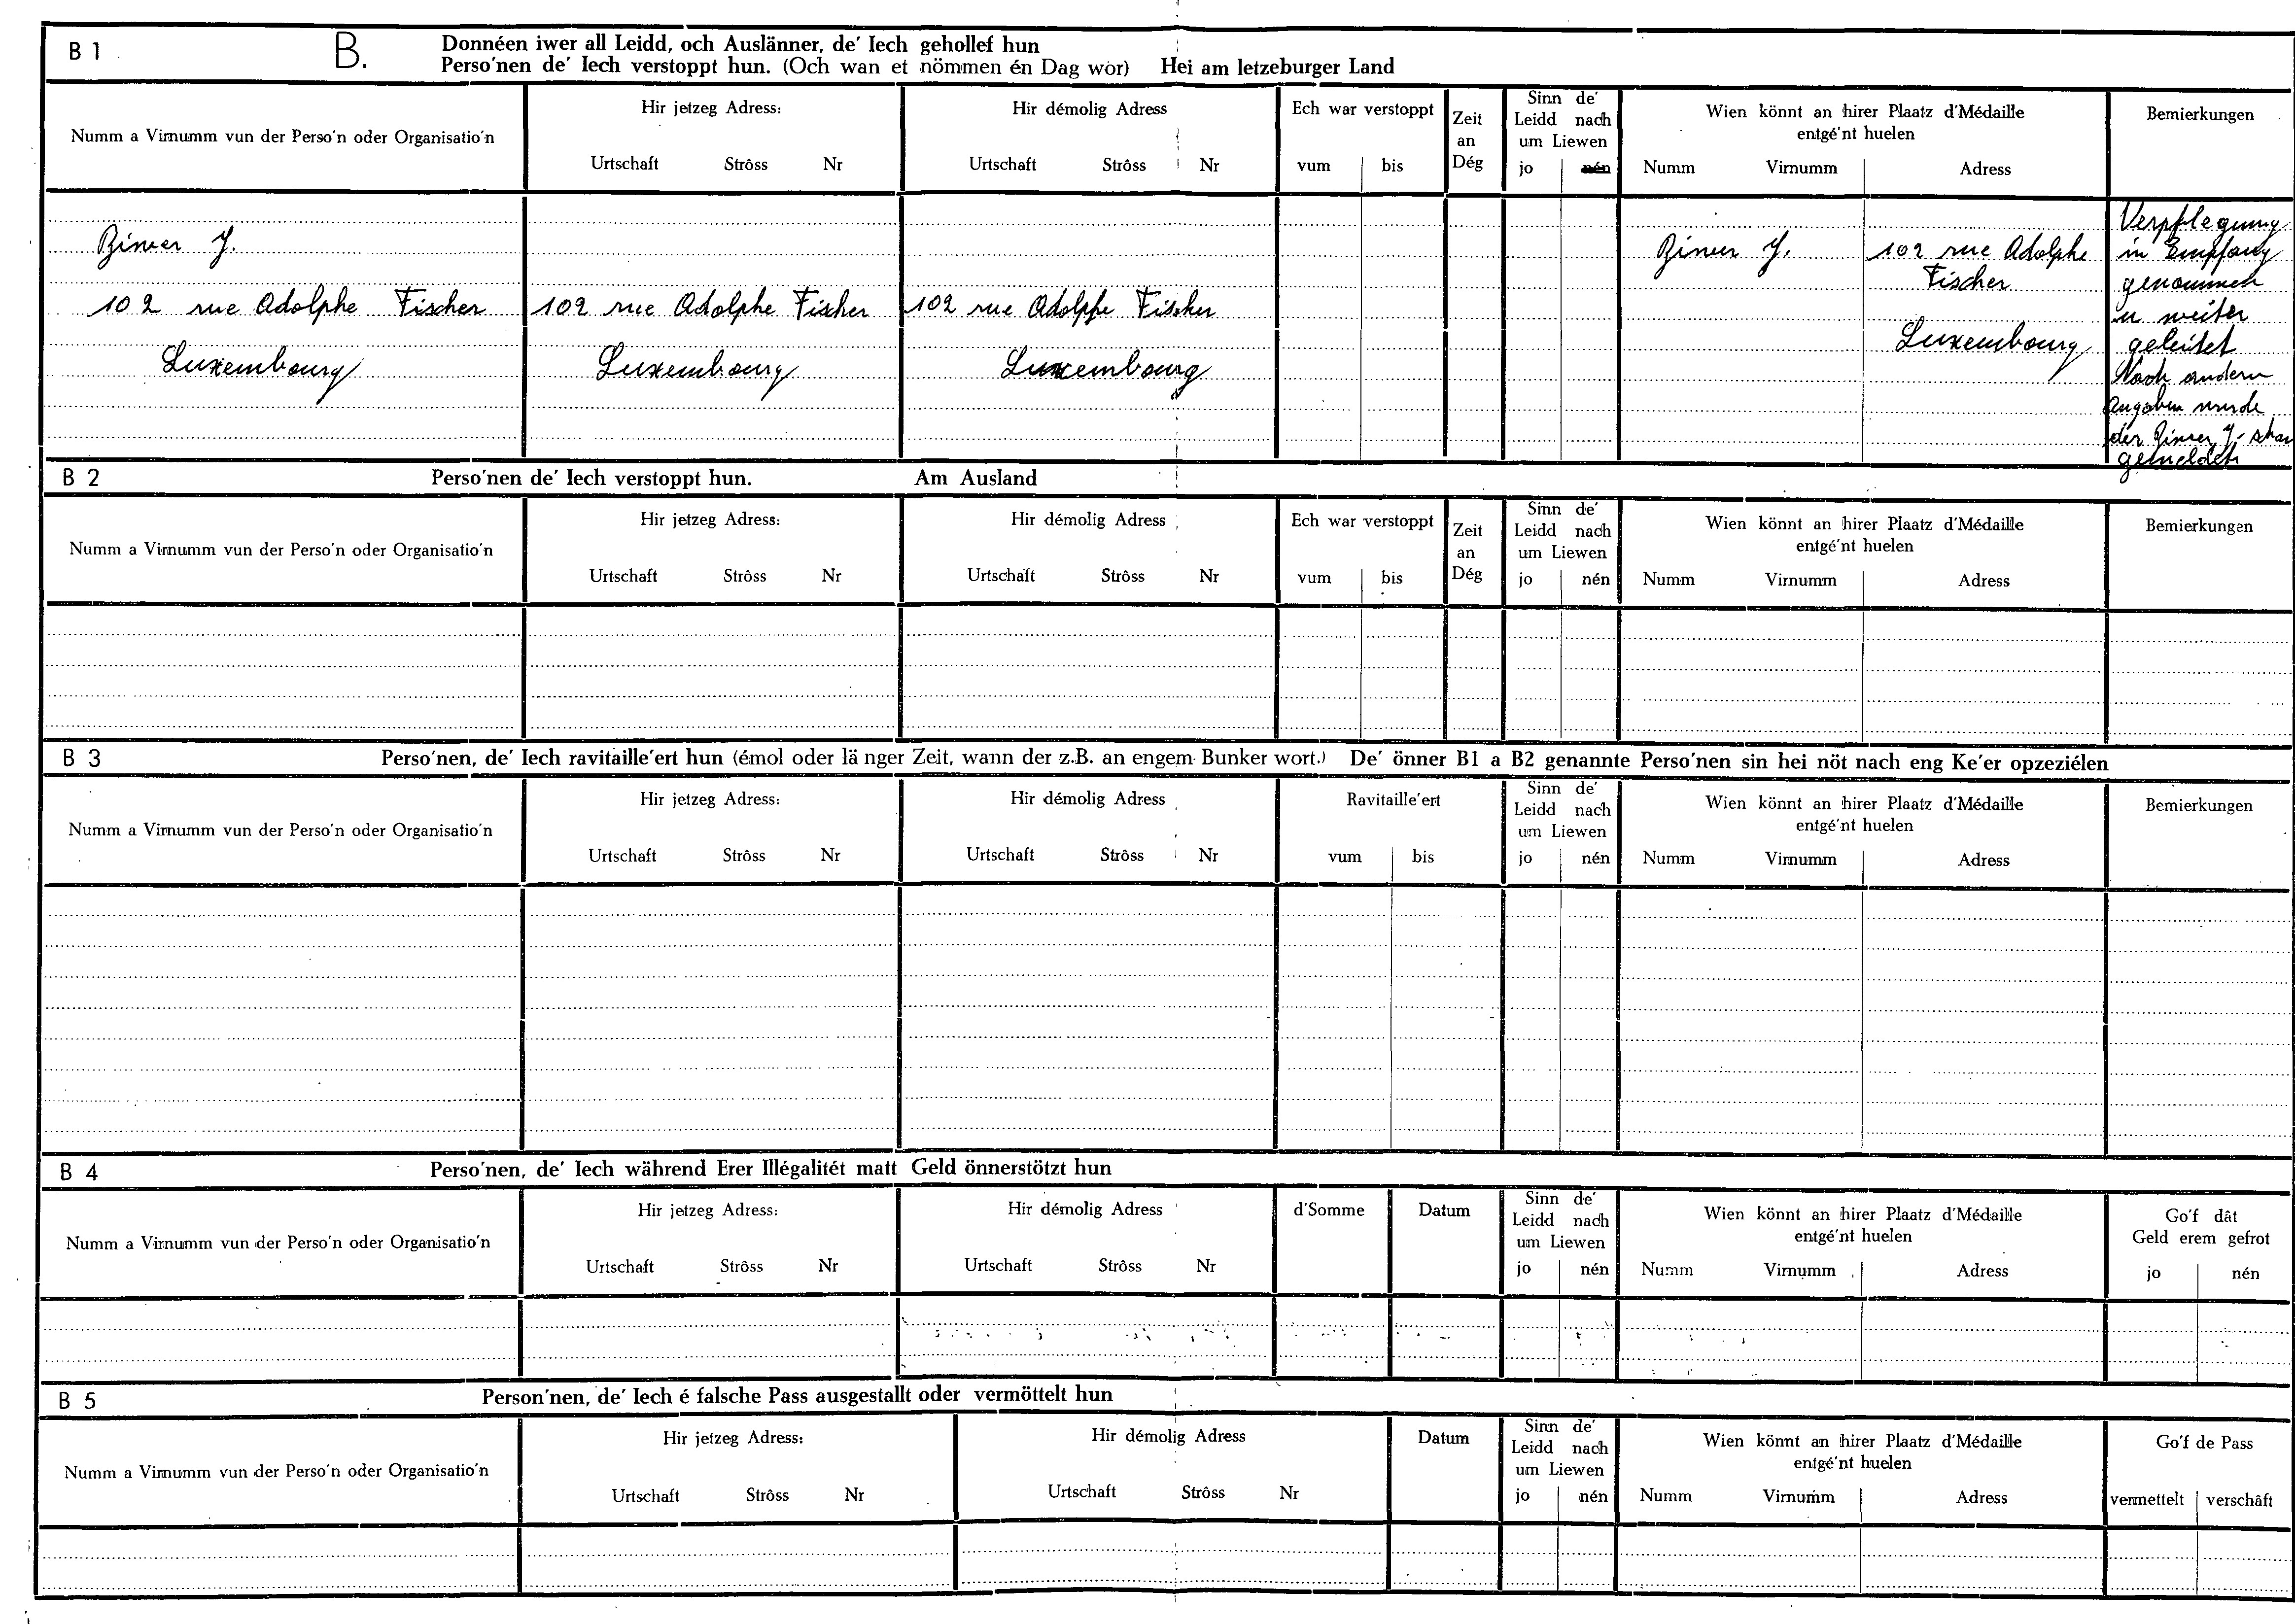 B 1
B.
Donnéen iwer all Leidd, och Auslänner, de' Iech gehollef hun
Perso'nen de' Iech verstoppt hun. (Och wan et nömmen én Dag wor) Hei am letzeburger Land
Numm a Virnumm vun der Perso'n oder Organisatio'n
Hir jetzeg Adress:
Urtschaft Strôss Nr
Hir démolig Adress
Urtschaft Strôss Nr
Ech war verstoppt
vum bis
Zeit
an
Dég
Sinn de'
Leidd nach
um Liewen
jo nén
Wien könnt an hirer Plaatz d'Médaille
entgé'nt huelen
Numm Virnumm Adress
Bemierkungen
J.
102 rue Adolphe Fischer
Luxembourg
102 rue Adolphe Fischer
Luxembourg
102 rue Adolphe Fischer
Luxembourg
J.
102 rue Adolphe
Fischer
Luxembourg
Verpflegung
in Empfang
genommen
u weiter
geleitet
Nach andern
Angaben wurde
der J.
gemeldet
B 2
Perso'nen de' Iech verstoppt hun. Am Ausland
Numm a Virnumm vun der Perso'n oder Organisatio'n
Hir jetzeg Adress:
Urtschaft Strôss Nr
Hir démolig Adress
Urtschaft Strôss Nr
Ech war verstoppt
vum bis
Zeit
an
Dég
Sinn de'
Leidd nach
um Liewen
jo nén
Wien könnt an hirer Plaatz d'Médaille
entgé'nt huelen
Numm Virnumm Adress
Bemierkungen
B 3
Perso'nen, de' Iech ravitaille'ert hun (émol oder länger Zeit, wann der z.B. an engem Bunker wort.) De' önner B1 a B2 genannte Perso'nen sin hei nöt nach eng Ke'er opzeziélen
Numm a Virnumm vun der Perso'n oder Organisatio'n
Hir jetzeg Adress:
Urtschaft Strôss Nr
Hir démolig Adress
Urtschaft Strôss Nr
Ravitaille'ert
vum bis
Sinn de'
Leidd nach
um Liewen
jo nén
Wien könnt an hirer Plaatz d'Médaille
entgé'nt huelen
Numm Virnumm Adress
Bemierkungen
B 4
Perso'nen, de' Iech während Erer Illégalitét matt Geld önnerstötzt hun
Numm a Virnumm vun der Perso'n oder Organisatio'n
Hir jetzeg Adress:
Urtschaft Strôss Nr
Hir démolig Adress
Urtschaft Strôss Nr
d'Somme
Datum
Sinn de'
Leidd nach
um Liewen
jo nén
Wien könnt an hirer Plaatz d'Médaille
entgé'nt huelen
Numm Virnumm Adress
Go'f dât
Geld erem gefrot
jo nén
B 5
Person'nen, de' Iech é falsche Pass ausgestallt oder vermöttelt hun
Numm a Virnumm vun der Perso'n oder Organisatio'n
Hir jetzeg Adress:
Urtschaft Strôss Nr
Hir démolig Adress
Urtschaft Strôss Nr
Datum
Sinn de'
Leidd nach
um Liewen
jo nén
Wien könnt an hirer Plaatz d'Médaille
entgé'nt huelen
Numm Virnumm Adress
Go'f de Pass
vermettelt verschâft